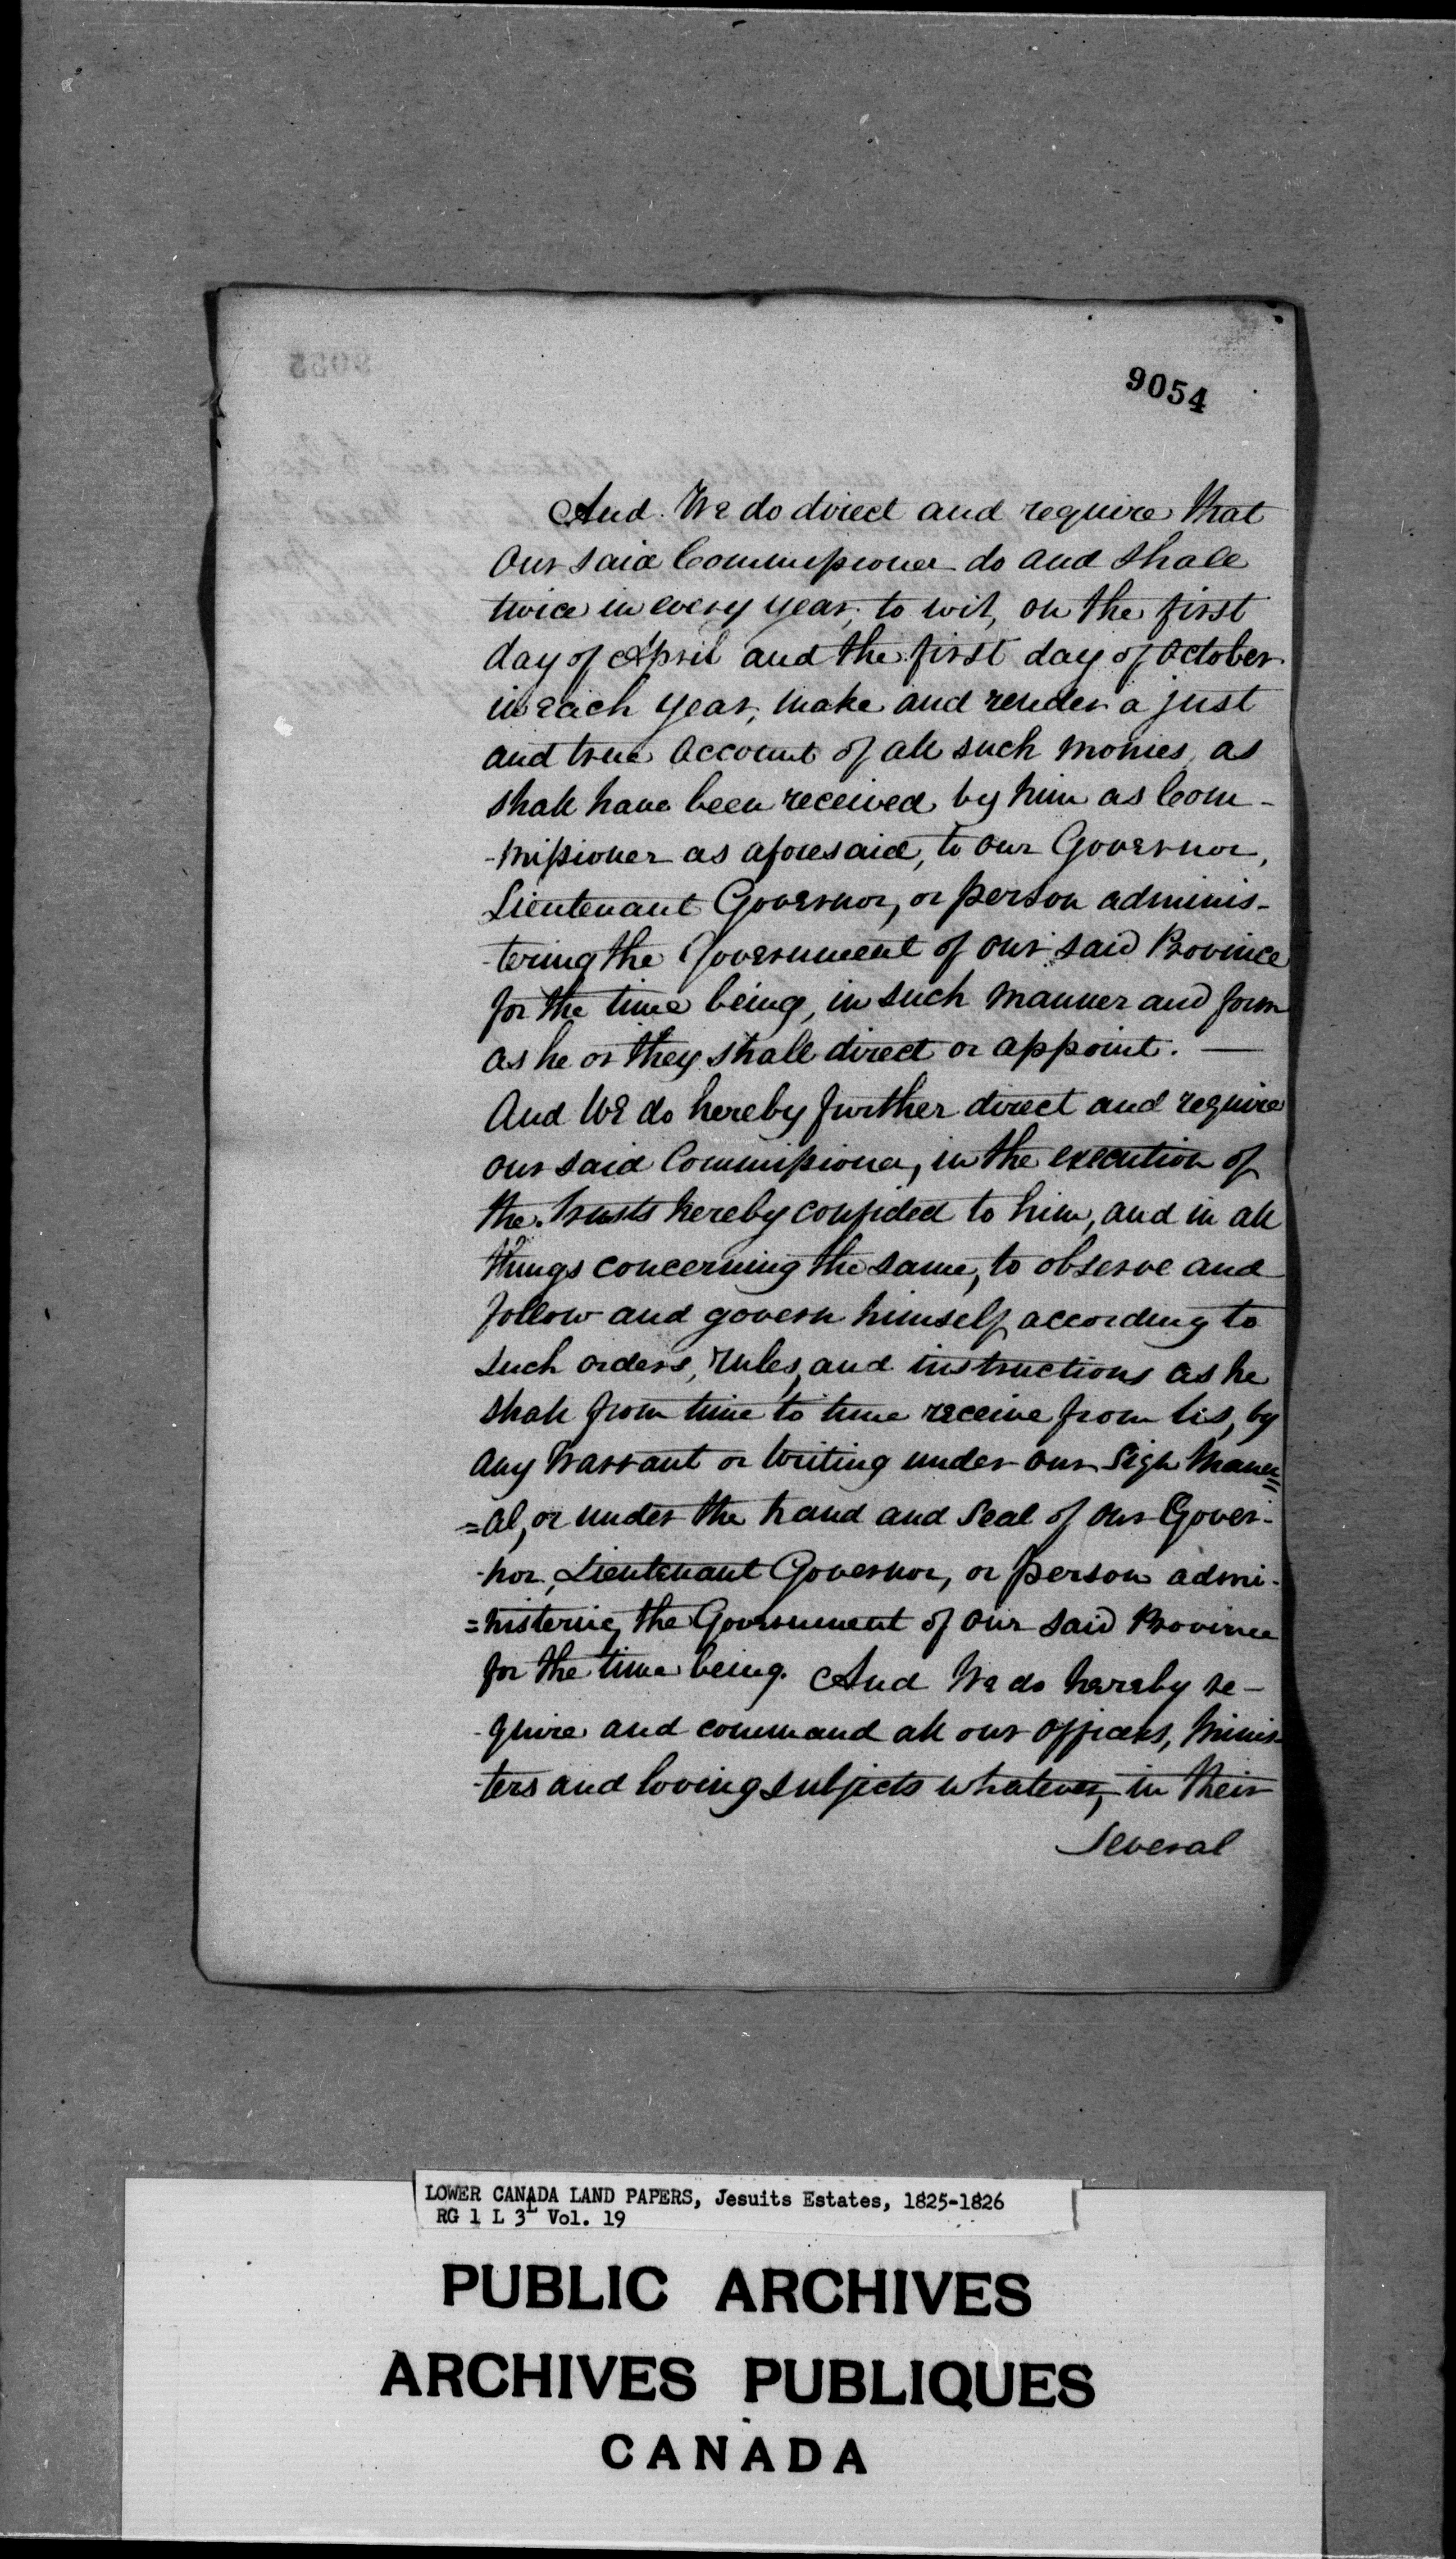 9054
And We do direct and require that
our said Commissioner do and shall
twice in every year, to wit, on the first
day of April and the first day of October
in each year, make and render a just
and true account of all such monies, as
shall have been received by him as Com-
-missioner as aforesaid, to our Governor,
Lieutenant Governor, or person adminis-
-tering the Government of our said Province
for the time being, in such manner and form
as he or they shall direct or appoint. —
And We do hereby further direct and require
our said Commissioner, in the execution of
the trusts hereby confided to him, and in all
things concerning the same, to observe and
follow and govern himself according to
such orders, rules, and instructions as he
shall from time to time receive from Us, by
any Warrant or Writing under our Sign Manu=
=al, or under the hand and Seal of our Gover-
-nor, Lieutenant Governor, or person admi-
=nistering the Government of our said Province
for the time being. And We do hereby re-
-quire and command all our officers, Minis-
-ters and loving subjects whatever, in their
Several
LOWER CANADA LAND PAPERS, Jesuits Estates, 1825-1826
RG 1 L 3L Vol. 19
PUBLIC ARCHIVES
ARCHIVES PUBLIQUES
CANADA